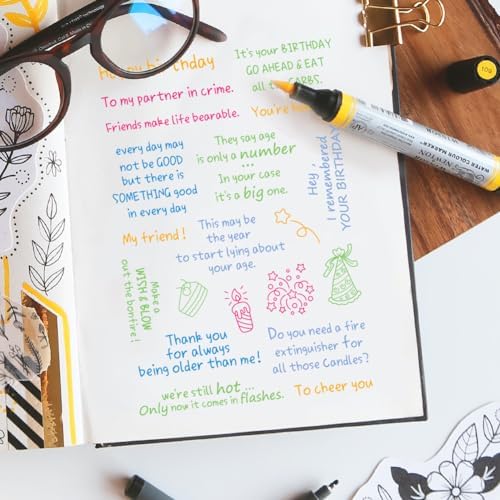 Happy birthday
It's your BIRTHDAY
GO AHEAD & EAT
all the CARBS.
To my partner in crime.
Friends make life bearable.
You're
every day may
not be GOOD
but there is
SOMETHING good
in every day
They say age
is only a number ...
In your case
it's a big one.
Hey,
I remembered
YOUR BIRTHDAY
My friend!
This may be
the year
to start lying about
your age.
Make a
WISH & BLOW
out the bonfire!
Thank you
for always
being older than me!
Do you need a fire
extinguisher for
all those Candles?
we're still hot ...
Only now it comes in flashes.
To cheer you
WATER COLOUR MARKER
& NEWTON